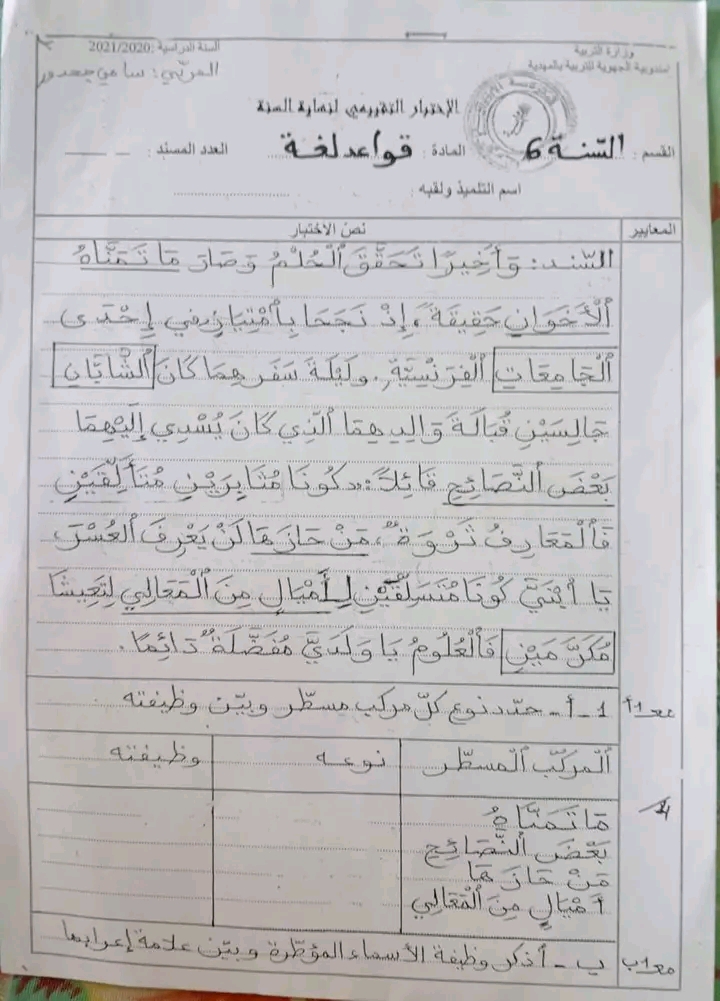 وزارة التربية
السنة الدراسية :2021/2020
المندوبية الجهوية للتربية بالمهدية
المربّي: سامي
الاختبار التقييمي لنهاية السنة
القسم : السّنة 6 المادة : قواعد لغة العدد المسند :
اسم التلميذ ولقبه :
المعايير نص الاختبار
السّند: وَأَخِيرًا تَحَقَّقَ ٱلْحُلْمُ وَصَارَ مَا تَمَنَّاهُ
ٱلْأَخَوَانِ حَقِيقَةً، إِذْ نَجَحَا بِٱمْتِيَازٍ في إِحْدَى
ٱلْجَامِعَاتِ ٱلْفِرَنْسِيَّةِ. وَلَيْلَةَ سَفَرِهِمَا كَانَ ٱلْشَابَّانِ
جَالِسَيْنِ قُبَالَةَ وَالِدِهِمَا ٱلَّذِي كَانَ يُسْدِي إِلَيْهِمَا
بَعْضَ ٱلنَّصَائِحِ قَائِلاً: «كُونَا مُثَابِرَيْنِ مُتَأَلِّقَيْنِ
فَٱلْمَعَارِفُ ثَرْوَةٌ، مَنْ حَازَهَا لَنْ يَعْرِفَ ٱلْعُسْرَ،
يَا ٱبْنَيَّ كُونَا مُتَسَلِّقَيْنِ لِأَمْيَالٍ مِنَ ٱلْمَعَالِي لِتَعِيشَا
مُكَرَّمَيْنِ فَٱلْعُلُومُ يَا وَلَدَيَّ مُفَضَّلَةٌ دَائِمًا.
مع1أ 1-أ- حدّد نوع كلّ مركب مسطّر وبيّن وظيفته
ٱلْمركّب ٱلْمسطّر نوعه وظيفته
مَا تَمَنَّاهُ
بَعْضَ ٱلنَّصَائِحِ
مَنْ حَازَهَا
أَمْيَالٍ مِنَ ٱلْمَعَالِي
مع1ب ب- أذكر وظيفة الأسماء المؤطّرة وبيّن علامة إعرابها